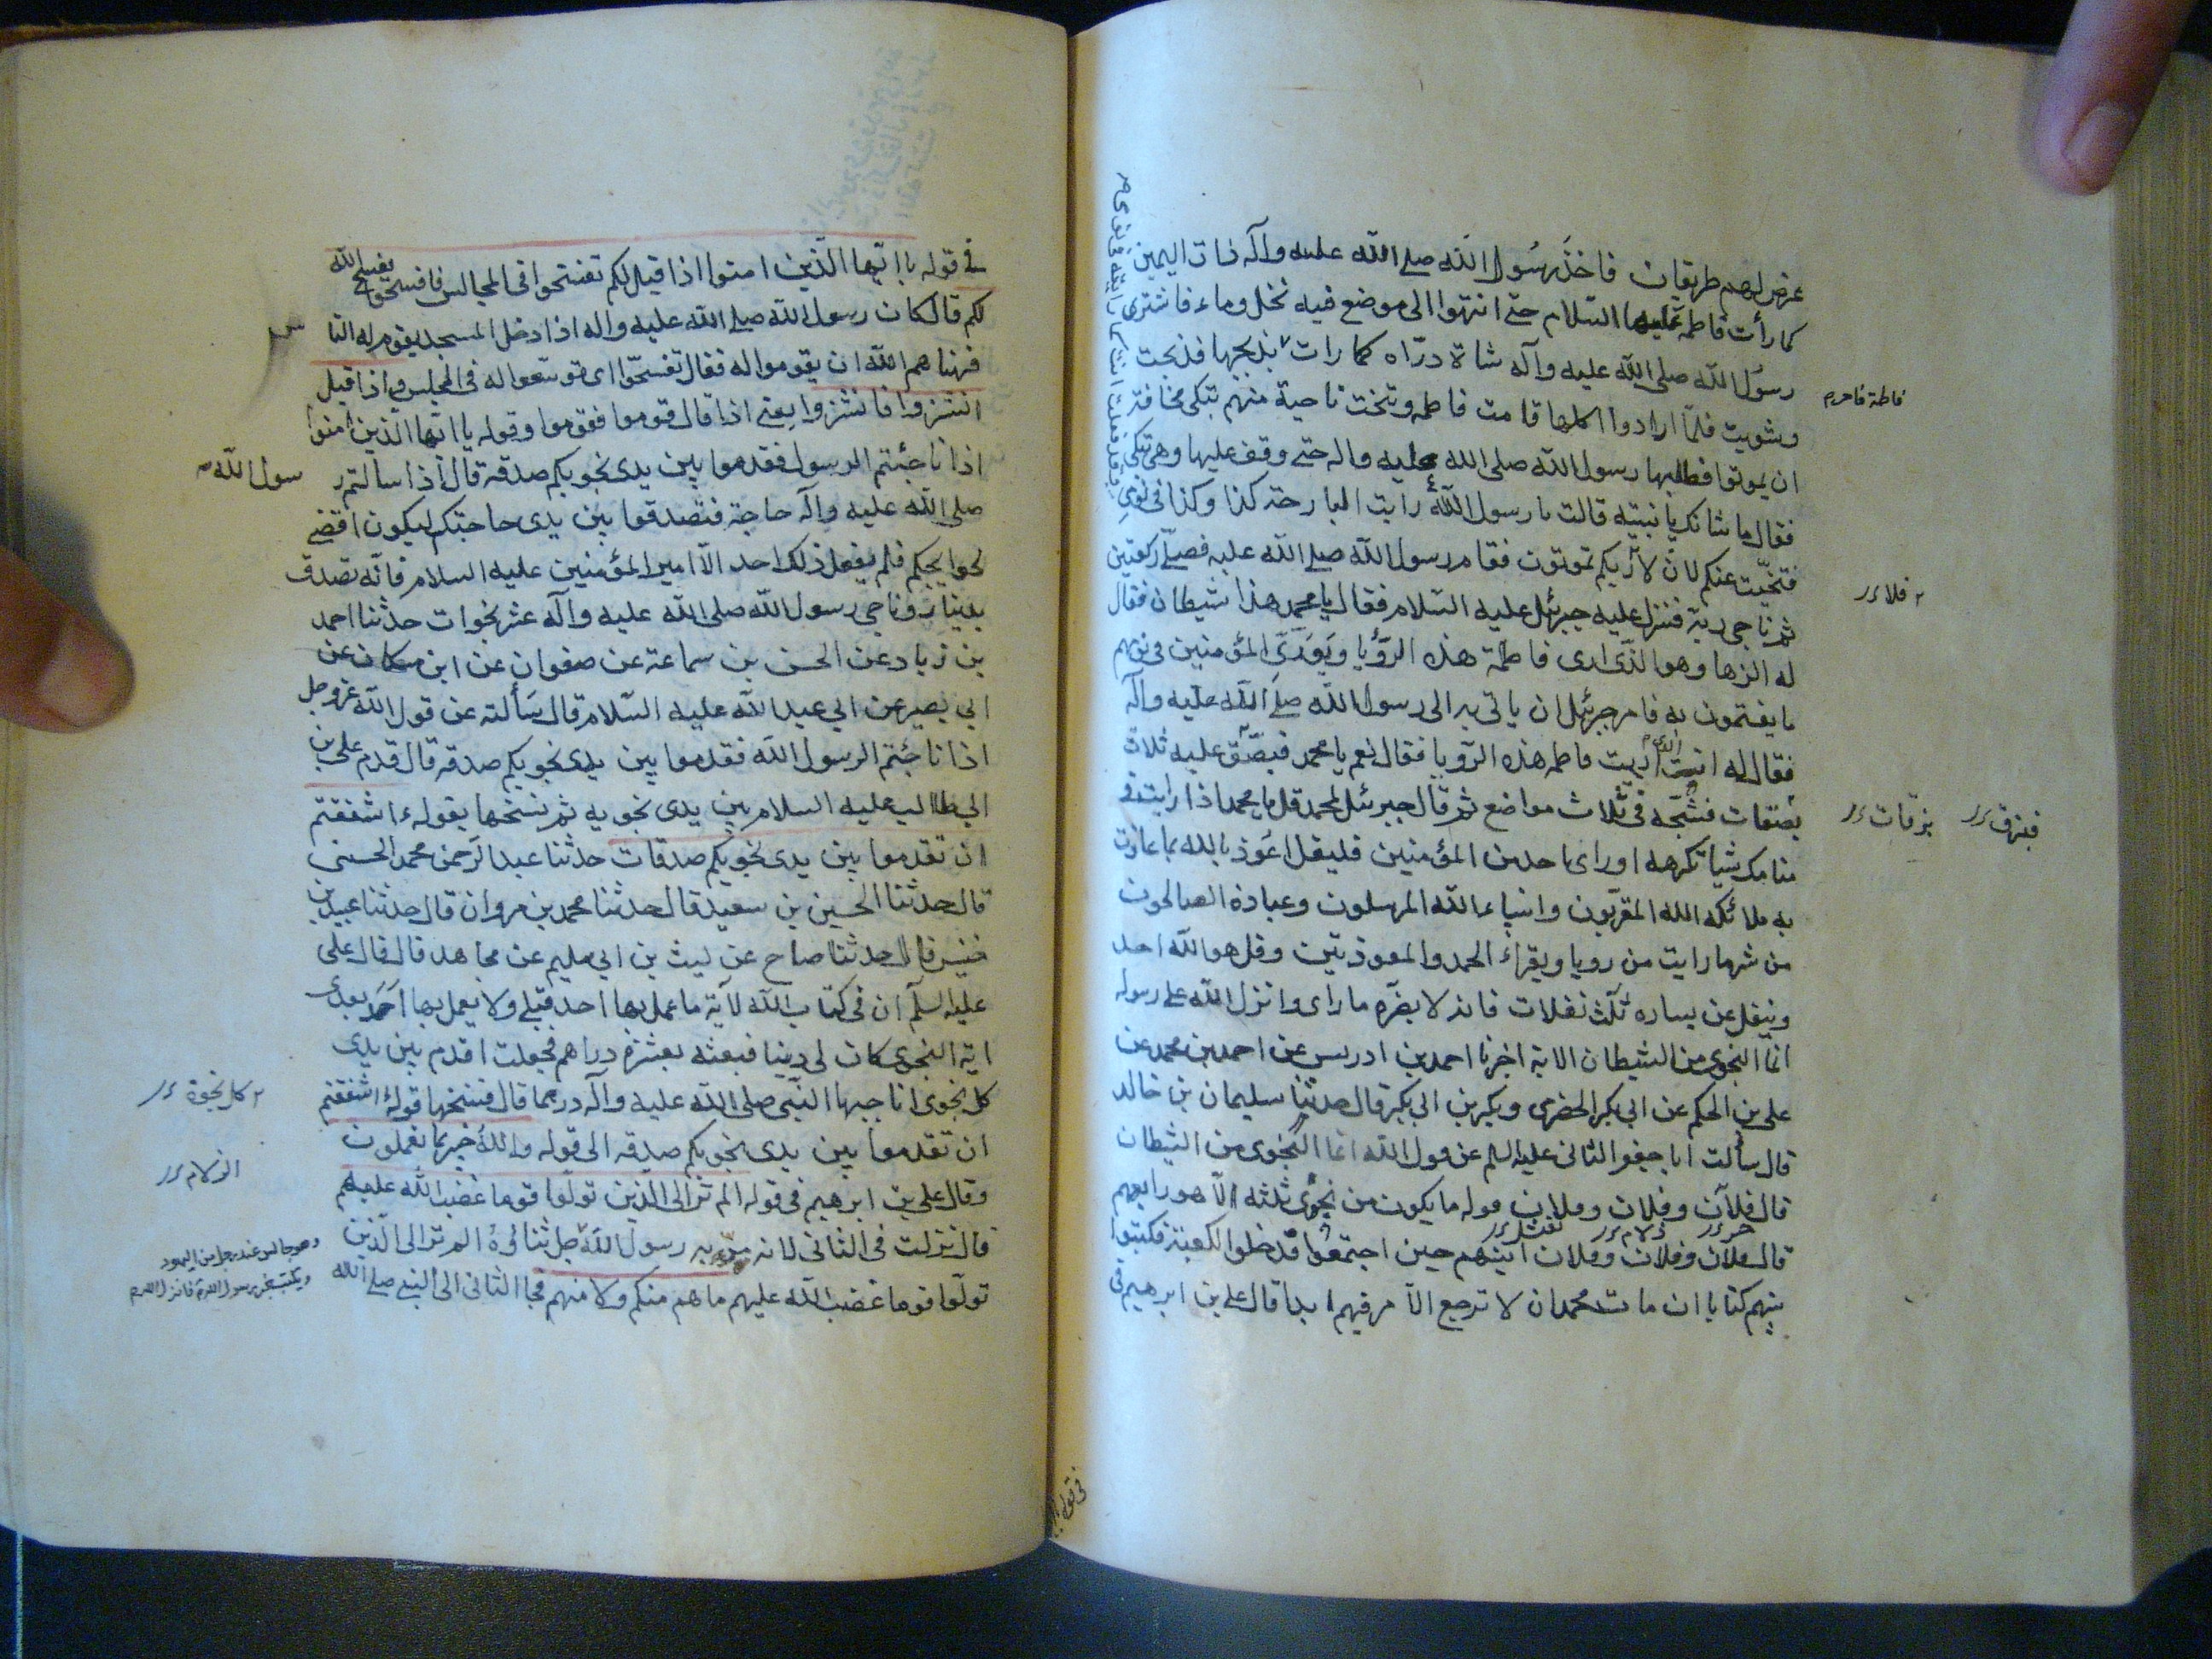 عرض لهم طريقان فاخذ رسول الله صلى الله عليه وآله ذات اليمين
كما رأت فاطمة عليها السلام حتى انتهوا الى موضع فيه نخل وماء فاشترى
رسول الله صلى الله عليه وآله شاة درّاء كما رات بذبحها فذبحت
وشويت فلمّا ارادوا اكلها قامت فاطمه وتنحت ناحية منهم تبكى مخافة
ان يموتوا فطلبها رسول الله صلى الله عليه واله حتى وقف عليها وهى تبكى
فقال ما شانك يا بنيته قالت يا رسول الله رايت البارحة كذا وكذا فى نومى
فتنحّيت عنكم لان لا اريكم تموتون فقام رسول الله صلى الله عليه فصلّى ركعتين
ثم ناجى ربّه فنزل عليه جبرئيل عليه السلام فقال يا محمد هذا شيطان فقال
له الزها وهو الذى ارى فاطمة هذه الرؤيا ويؤذى المؤمنين فى نومهم
ما يغتمون به فامر جبرئيل ان ياتى به الى رسول الله صلى الله عليه وآله
فقال له انت الذى اريت فاطمه هذه الرؤيا فقال نعم يا محمد فبصق عليه ثلاث
بصقات فشجّه فى ثلاث مواضع ثم قال جبرئيل لمحمد قل يا محمد اذا رايت فى
منامك شيا تكرهه او راى احد من المؤمنين فليقل اعوذ بالله بما عاذت
به ملائكه الله المقربون وانبياء الله المرسلون وعباده الصالحون
من شر ما رايت من رويا ويقراء الحمد والمعوذتين وقل هو الله احد
ويتفل عن يساره ثلث تفلات فانه لا يضره ما راى وانزل الله على رسوله
انما النجوى من الشيطان الاية اخبرنا احمد بن ادريس عن احمد بن محمد عن
على بن الحكم عن ابى بكر الحضرمى وبكر بن ابى بكر قال حدثنا سليمان بن خالد
قال سألت ابا جعفر الثانى عليه السلم عن قول الله انما النجوى من الشيطان
قال فلان وفلان وفلان قوله ما يكون من نجوى ثلثه الا هو رابعهم
قال فلان وفلان وفلان امينهم حين اجتمعوا فدخلوا الكعبة فكتبوا
بينهم كتابا ان مات محمد ان لا ترجع الامر فيهم ابدا قال على بن ابرهيم فى
فاطمة قاحرم
فلا رر
فبزق رر
بزقات رر
فى قوله
فى قوله يا ايها الذين امنوا اذا قيل لكم تفسحوا فى المجالس فافسحوا يفسح الله
لكم قال كان رسول الله صلى الله عليه واله اذا دخل المسجد يقوم له النا
فنهاهم الله ان يقوموا له فقال تفسحوا اى توسعوا له فى المجلس واذا قيل
انشزوا فانشزوا يعنى اذا قال قوموا فقوموا وقوله يا ايها الذين امنوا
اذا ناجيتم الرسول فقدموا بين يدى نجويكم صدقة قال اذا سالتم ر
صلى الله عليه وآله حاجة فتصدقوا بين يدى حاجتكم ليكون اقضى
لحوايجكم فلم يفعل ذلك احد الا امير المؤمنين عليه السلام فانه تصدق
بدينار وناجى رسول الله صلى الله عليه وآله عشر نجوات حدثنا احمد
بن زياد عن الحسن بن سماعة عن صفوان عن ابن مسكان عن
ابى بصير عن ابى عبد الله عليه السلام قال سألته عن قول الله عز وجل
اذا ناجيتم الرسول الله فقدموا بين يدى نجويكم صدقه قال قدم على بن
ابى طالب عليه السلام بين يدى نجويه ثم نسخها بقوله ءاشفقتم
ان تقدموا بين يدى نجويكم صدقات حدثنا عبد الرحمن محمد الحسنى
قال حدثنا الحسين بن سعيد قال حدثنا محمد بن مروان قال حدثنا عبيد بن
خنيس قال حدثنا صباح عن ليث بن ابى سليم عن مجاهد قال قال على
عليه السلم ان فى كتاب الله لآية ما عمل بها احد قبلى ولا يعمل بها احد بعدى
اية النجوى كان لى دينا فبعته بعشرة دراهم فجعلت اقدم بين يدى
كل نجوى اناجيها النبى صلى الله عليه وآله درهما قال فنسخها قوله ءاشفقتم
ان تقدموا بين يدى نجويكم صدقه الى قوله والله خبير بما تعملون
وقال على بن ابرهيم فى قوله الم تر الى الذين تولوا قوما غضب الله عليهم
قال نزلت فى الثانى لانه مرّ به رسول الله جل ثناؤه الم تر الى الذين
تولّوا قوما غضب الله عليهم ما هم منكم ولا منهم فجا الثانى الى النبى صلى الله
سول الله
كل نجوة رر
الزلام رر
وهو جالس عند رجل من اليهود
ويكتب خبر رسول الله فانزل الله